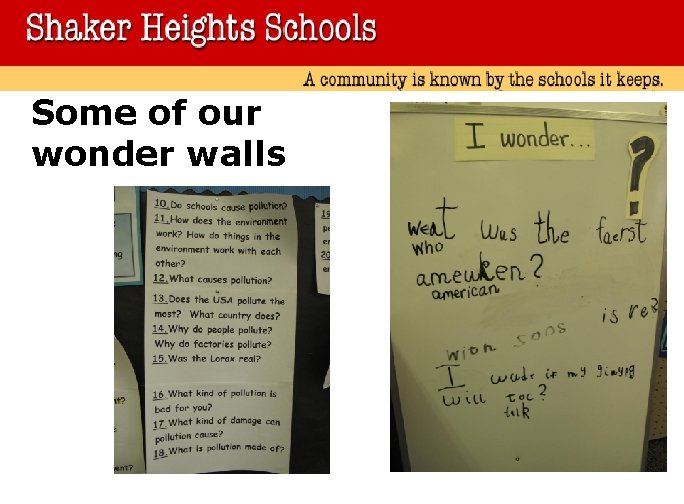 Shaker Heights Schools
A community is known by the schools it keeps.
Some of our
wonder walls
10. Do schools cause pollution?
11. How does the environment
work? How do things in the
environment work with each
other?
12. What causes pollution?
13. Does the USA pollute the
most? What country does?
14. Why do people pollute?
Why do factories pollute?
15. Was the Lorax real?
16. What kind of pollution is
bad for you?
17. What kind of damage can
pollution cause?
18. What is pollution made of?
ng
nt?
ment?
19
20
I wonder... ?
weat was the faerst
who
ameuken?
american
is re?
wion soos
I wadr if my
will toc?
talk